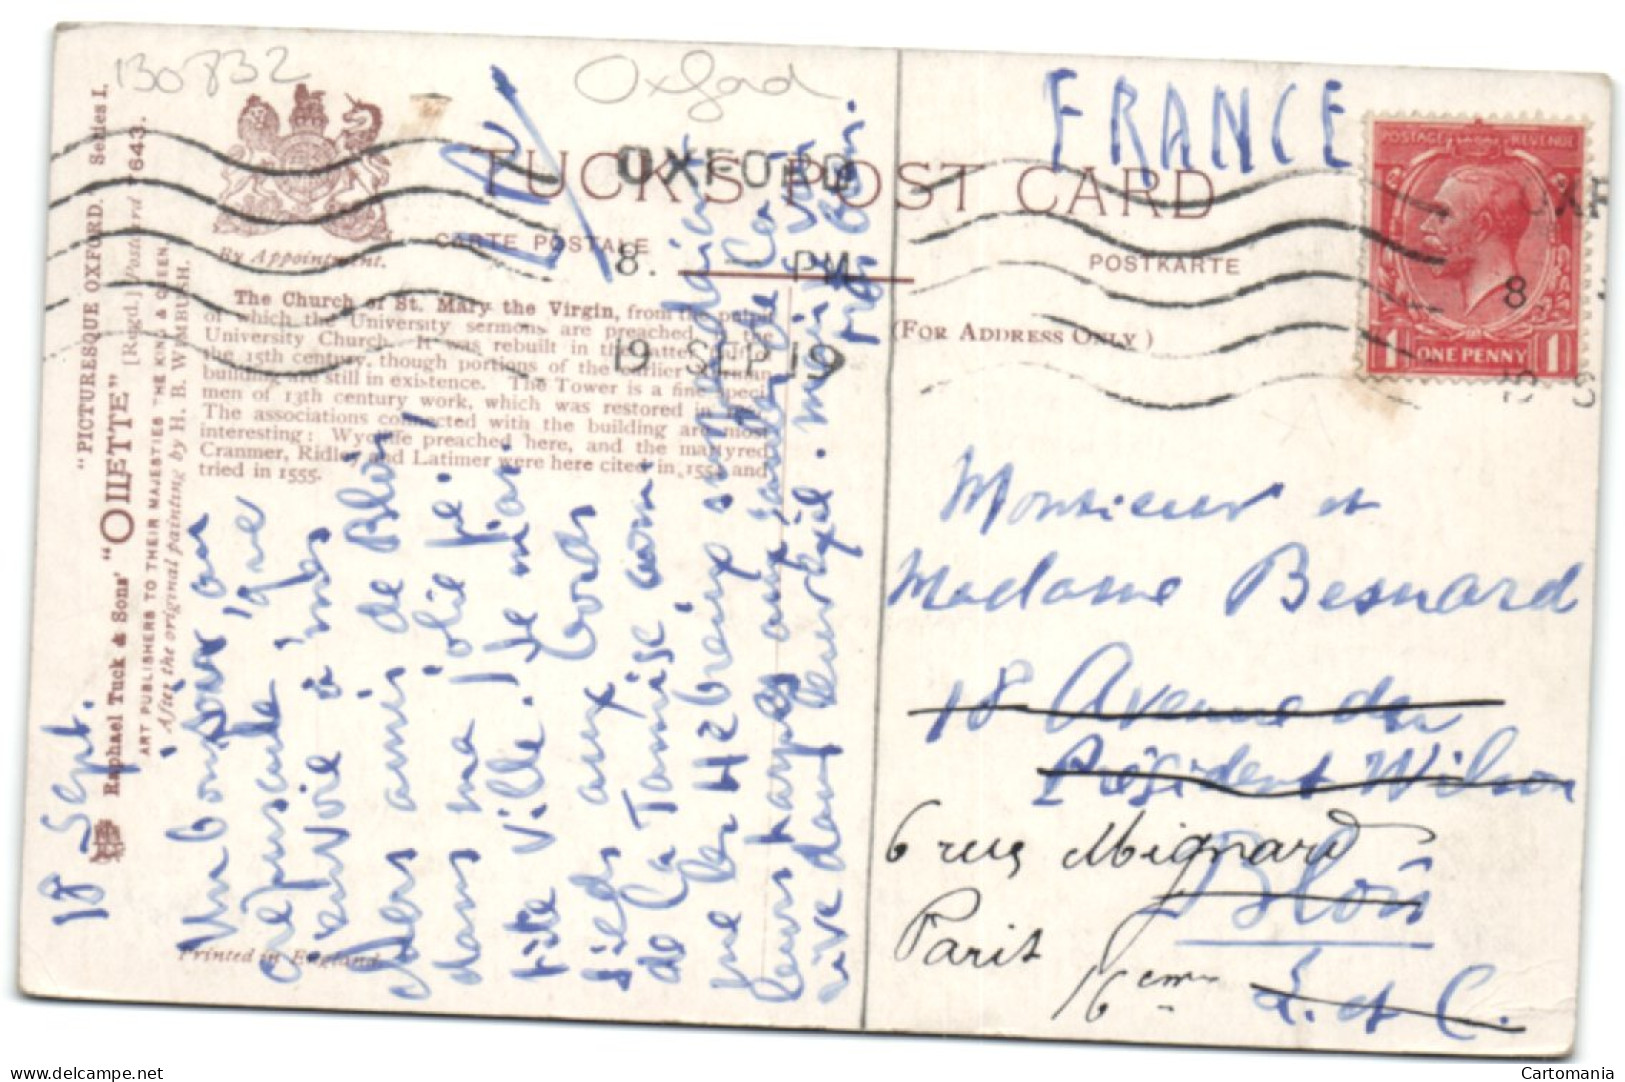 130832
Oxford
"PICTURESQUE OXFORD. Series I.
Raphael Tuck & Sons' "OILETTE" [Regd.] Postcard 7643.
ART PUBLISHERS TO THEIR MAJESTIES THE KING & QUEEN.
After the original painting by H. B. WIMBUSH.
By Appointment.
TUCK'S POST CARD
CARTE POSTALE
POSTKARTE
(FOR ADDRESS ONLY)
OXFORD
8. PM
19 SEP 19
The Church of St. Mary the Virgin, from the
of which the University sermons are preached
University Church. It was rebuilt in the latter
the 15th century, though portions of the earlier
building are still in existence. The Tower is a fine
men of 13th century work, which was restored in
The associations connected with the building are most
interesting: Wycliffe preached here, and the martyred
Cranmer, Ridley and Latimer were here cited in 1554 and
tried in 1555.
Printed in England.
18 Sept.
Un bonjour au
crépuscule que
j'envoie à mes
chers amis de Blois
dans ma jolie pe-
tite ville. Je
aux bords
de la Tamise comme
que les Hébreux
leurs harpes aux saules de
FRANCE
POSTAGE REVENUE
1 ONE PENNY 1
8
Monsieur et
Madame Besnard
18 Avenue du
Président Wilson
Blois
L. et C.
6 rue Mignard
Paris
16eme
Cartomania